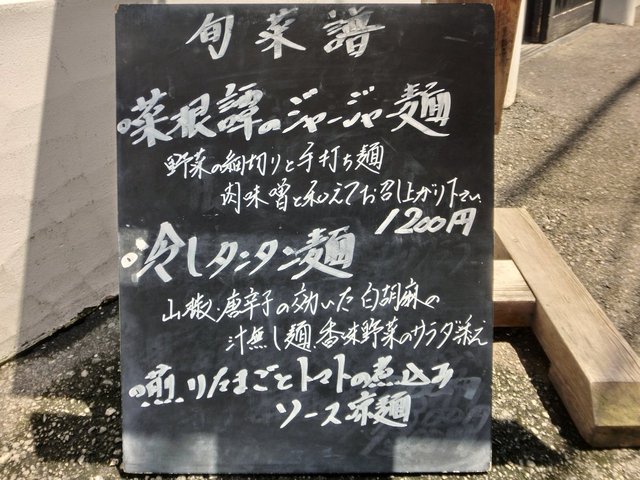 旬菜譜
菜根譚のジャージャ麺
野菜の細切りと手打ち麺
肉味噌と和えてお召し上がり下さい
1200円
冷しタンタン麺
山椒・唐辛子の効いた白胡麻の
汁無し麺、香味野菜のサラダ添え
煎りたまごとトマトの煮込み
ソース涼麺